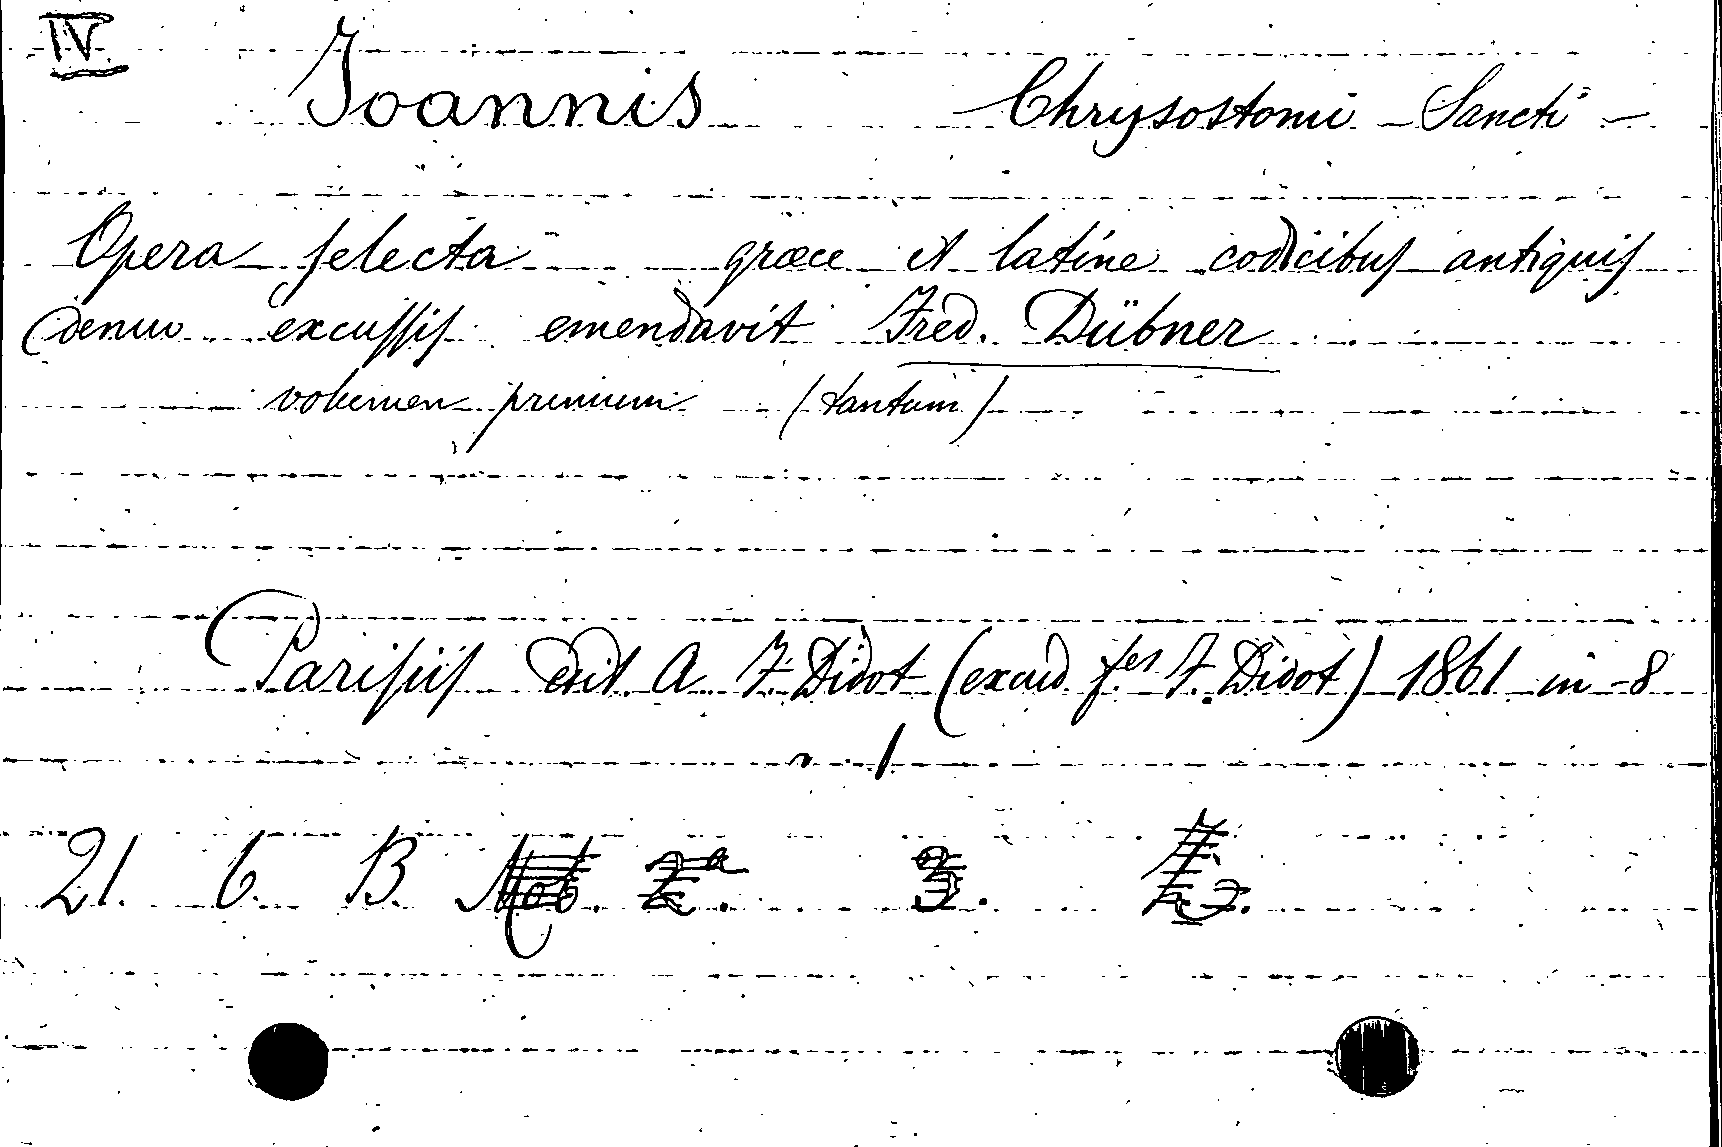 IV.
Joannis Chrysostomi - Sancti -
Opera selecta græce et latine codicibus antiquis
denuo excussis emendavit Fred. Dübner
volumen primum (tantum)
Parisiis edit A. F. Didot (excud. f.es F. Didot) 1861 in-8
21. 6. B.